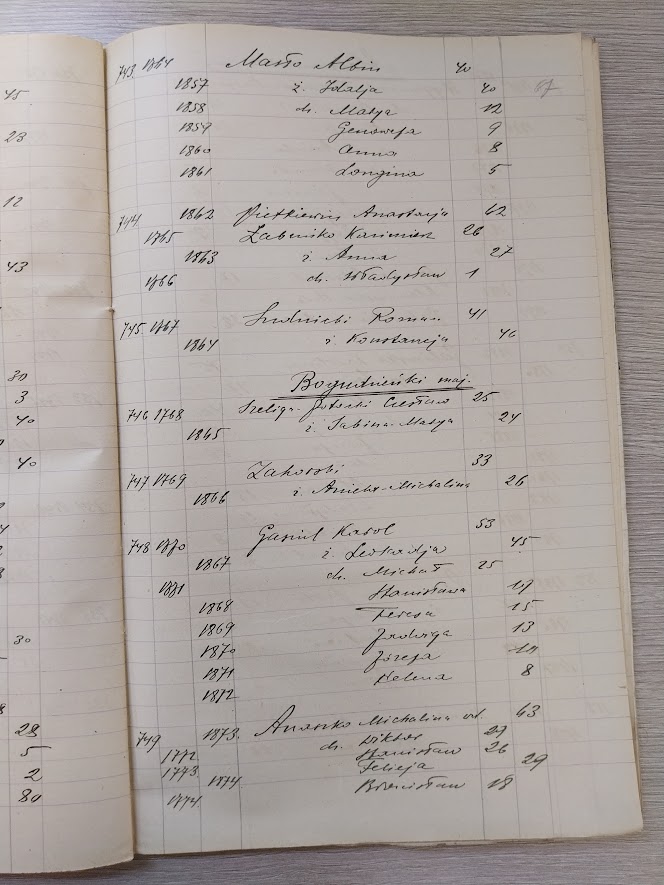 45
23
12
43
30
3
40
40
30
28
5
2
80
87
743 1764 Masło Albin 40
1857 ż. Idalja 40
1858 ch. Marja 12
1859 Genowefa 9
1860 Anna 8
1861 Longina 5
744 1862 Pietkiewicz Anastazja 62
1765 Kazimierz 26
1863 ż. Anna 27
1766 ch. Władysław 1
745 1767 Roman 41
1864 ż. Konstancja 46
Bogudzieński maj.
746 1768 Szeliga-Potocki Czesław 25
1865 ż. Sabina-Marja 24
747 1769 33
1866 ż. Aniela-Michalina 26
748 1770 Karol 53
1867 ż. Leokadja 45
1771 ch. Michał 25
1868 Stanisława 17
1869 Teresa 15
1870 Jadwiga 13
1871 Józefa
1872 Helena 8
749 1873 Anaszko Michalina wd. 63
1772 ch. Wiktor 29
1773 Stanisław 26
1874 Felicja 29
1774 Bronisław 18